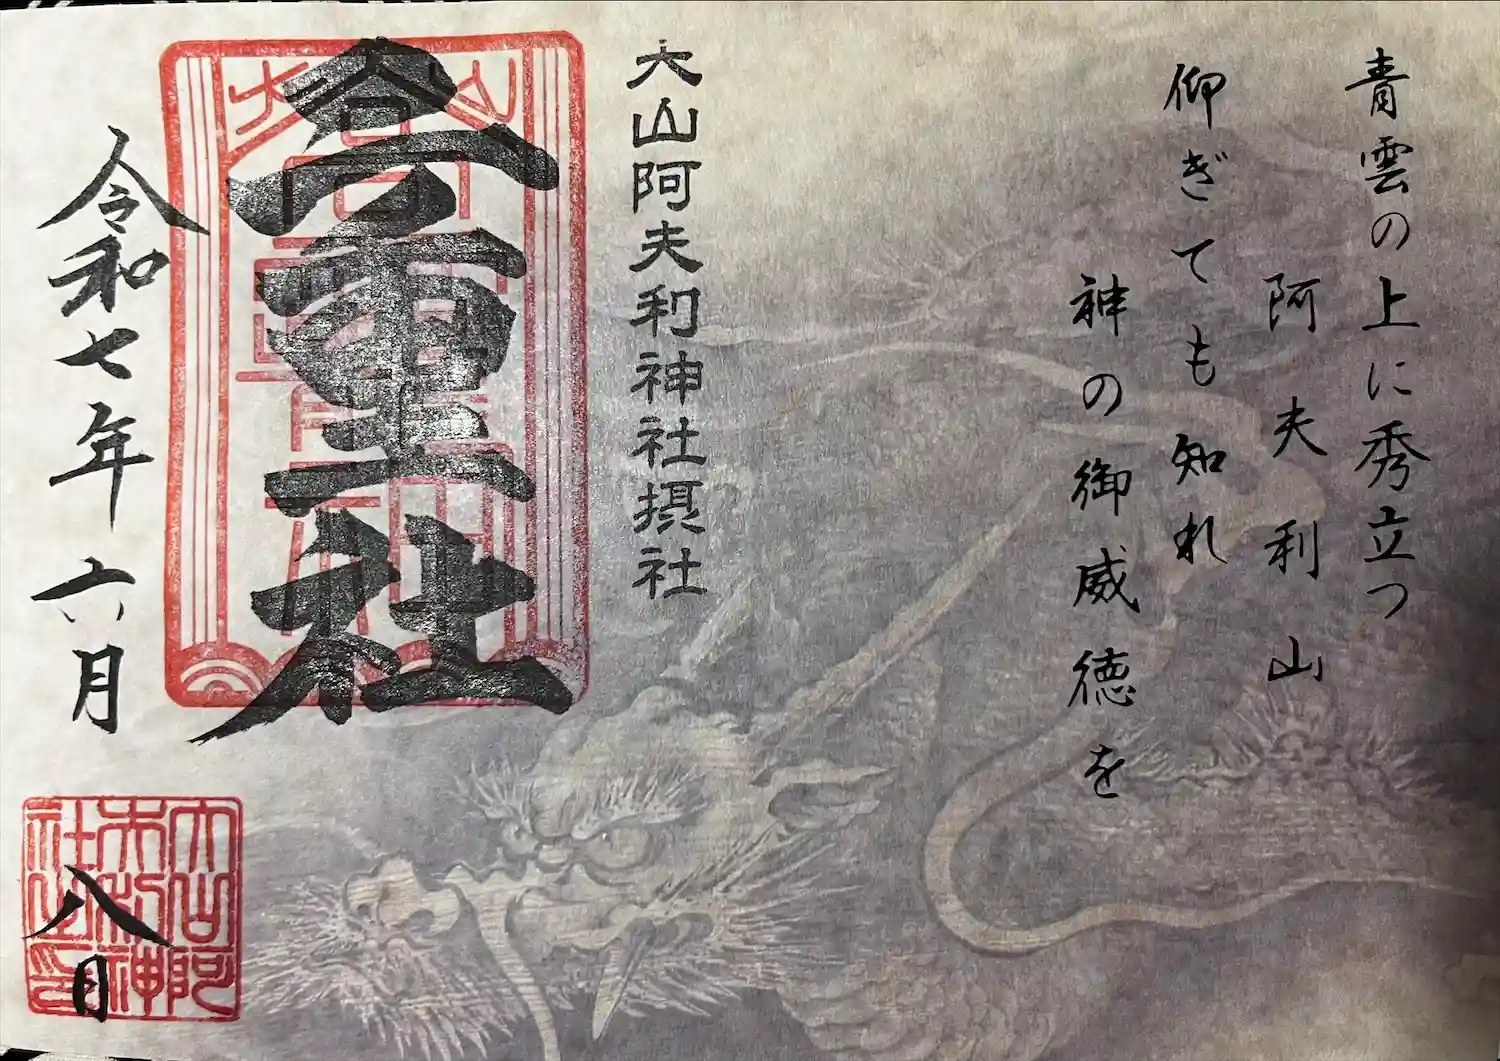 青雲の上に秀立つ
阿夫利山
仰ぎても知れ
神の御威徳を
大山阿夫利神社摂社
重社
令和七年六月八日
大山阿
夫利神
社之印